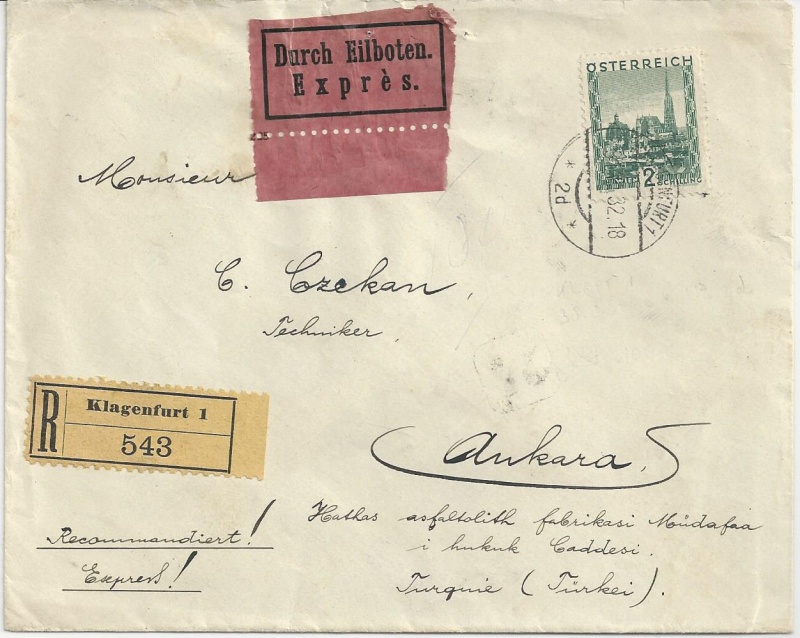 Durch Eilboten.
Exprès.
ÖSTERREICH
2
SCHILLING
2d
32.18
FURT 1
Monsieur
C. Czekan,
Techniker,
R
Klagenfurt 1
543
Ankara,
Hathas asfaltolith fabrikasi Müdafaa
i hukuk Caddesi.
Turquie (Türkei).
Recommandiert!
Express!